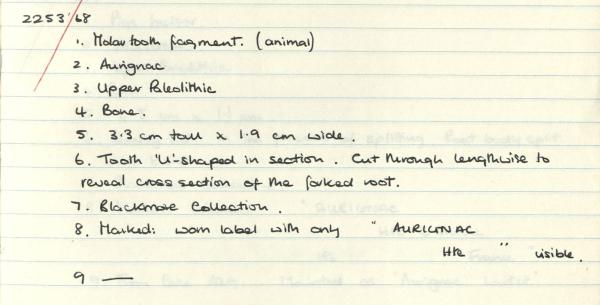 2253'68
1. Molar tooth fragment. (animal)
2. Aurignac
3. Upper Paleolithic
4. Bone.
5. 3.3 cm tall x 1.9 cm wide.
6. Tooth 'U'-shaped in section. Cut through lengthwise to
reveal cross section of the forked root.
7. Blackmore Collection.
8. Marked: worn label with only "AURIGNAC
Hte " visible.
9 —